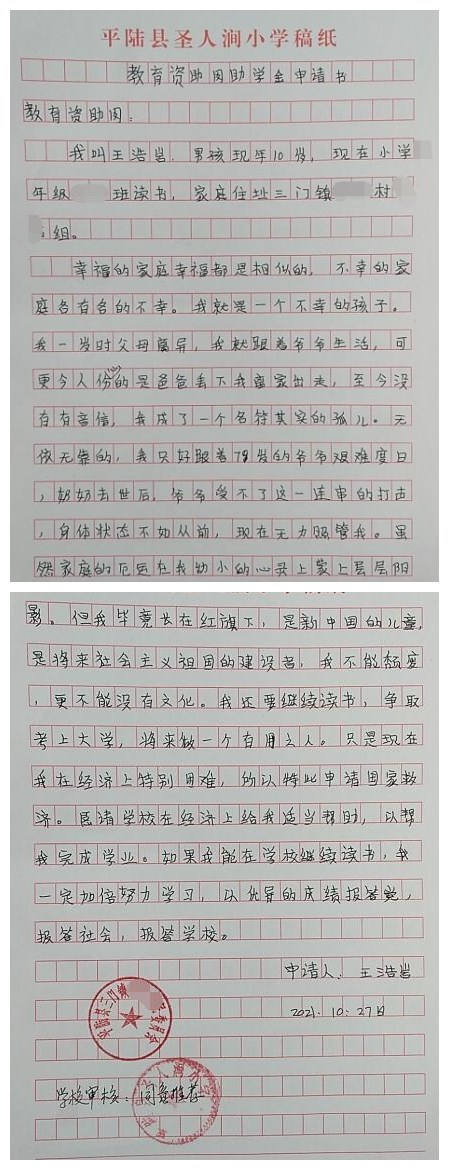 平陆县圣人涧小学稿纸
教育资助困助学金申请书
教育资助困：
我叫王浩岩，男孩现年10岁，现在小学
年级 班读书，家庭住址三门镇 村
组。
幸福的家庭幸福都是相似的，不幸的家
庭各有各的不幸。我就是一个不幸的孩子。
我一岁时父母离异，我就跟着爷爷生活，可
更令人份心的是爸爸丢下我离家出走，至今没
有有音信，我成了一个名符其实的孤儿。无
依无靠的，我只好跟着79岁的爷爷艰难度日
，奶奶去世后，爷爷受不了这一连串的打击
，身体状态不如从前，现在无力照管我。虽
然家庭的厄运在我幼小的心灵上蒙上层层阴
影。但我毕竟长在红旗下，是新中国的儿童，
是将来社会主义祖国的建设者，我不能颓废
，更不能没有文化。我还要继续读书，争取
考上大学，将来做一个有用之人。只是现在
我在经济上特别困难，所以特此申请国家救
济。恳请学校在经济上给我适当帮助，以帮
我完成学业。如果我能在学校继续读书，我
一定加倍努力学习，以优异的成绩报答党，
报答社会，报答学校。
申请人：王浩岩
2021.10.27日
平陆县三门镇 委员会
学校审核：同意推荐